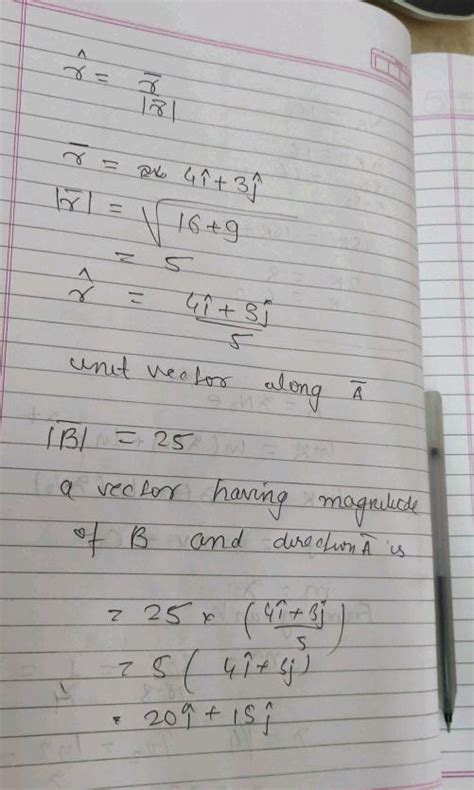 r̂ = r̄
|r̄|
r̄ = 4î + 3ĵ
|r̄| = √16+9
= 5
r̂ = 4î + 3ĵ
5
unit vector along Ā
|B̄| = 25
a vector having magnitude
of B and direction Ā is
= 25 × (4î + 3ĵ)
5
= 5 ( 4î + 3ĵ)
= 20î + 15ĵ